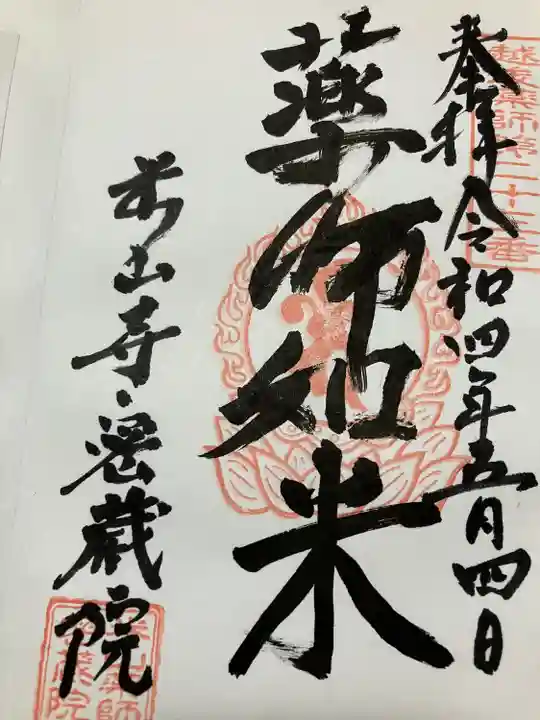 奉拝 令和四年五月四日
薬師如来
米山寺密蔵院
越後薬師第二十二番